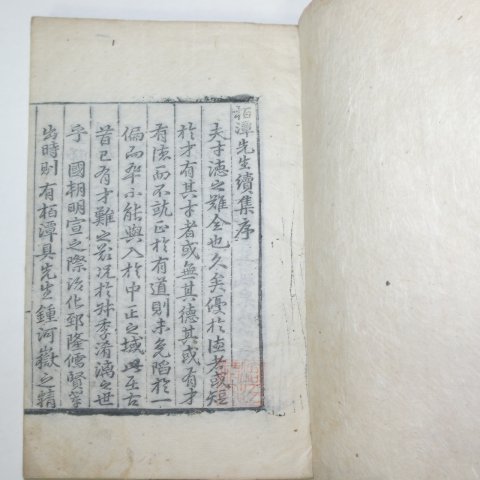 栢潭先生續集序
夫才德之難全也久矣優於德者或短
於才有其才者或無其德其或有才
有德而不就正於有道則未免陷於一
偏而卒不能與入於中正之域在古
昔已有才難之若況於叔季淆漓之世
乎 國朝明宣之際治化郅隆儒賢
當時則有栢潭具先生鍾河嶽之精